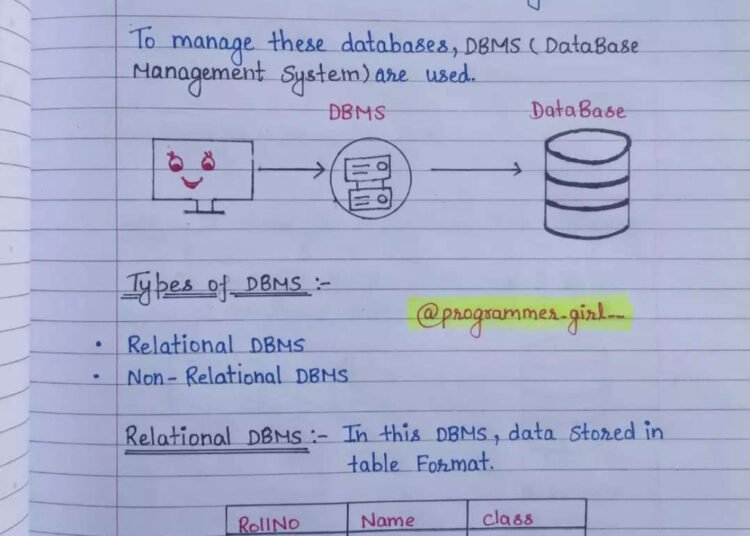 To manage these databases, DBMS (DataBase
Management System) are used.
DBMS
DataBase
Types of DBMS :-
@programmer-girl--
• Relational DBMS
• Non-Relational DBMS
Relational DBMS :- In this DBMS, data Stored in
table Format.
RollNo Name class